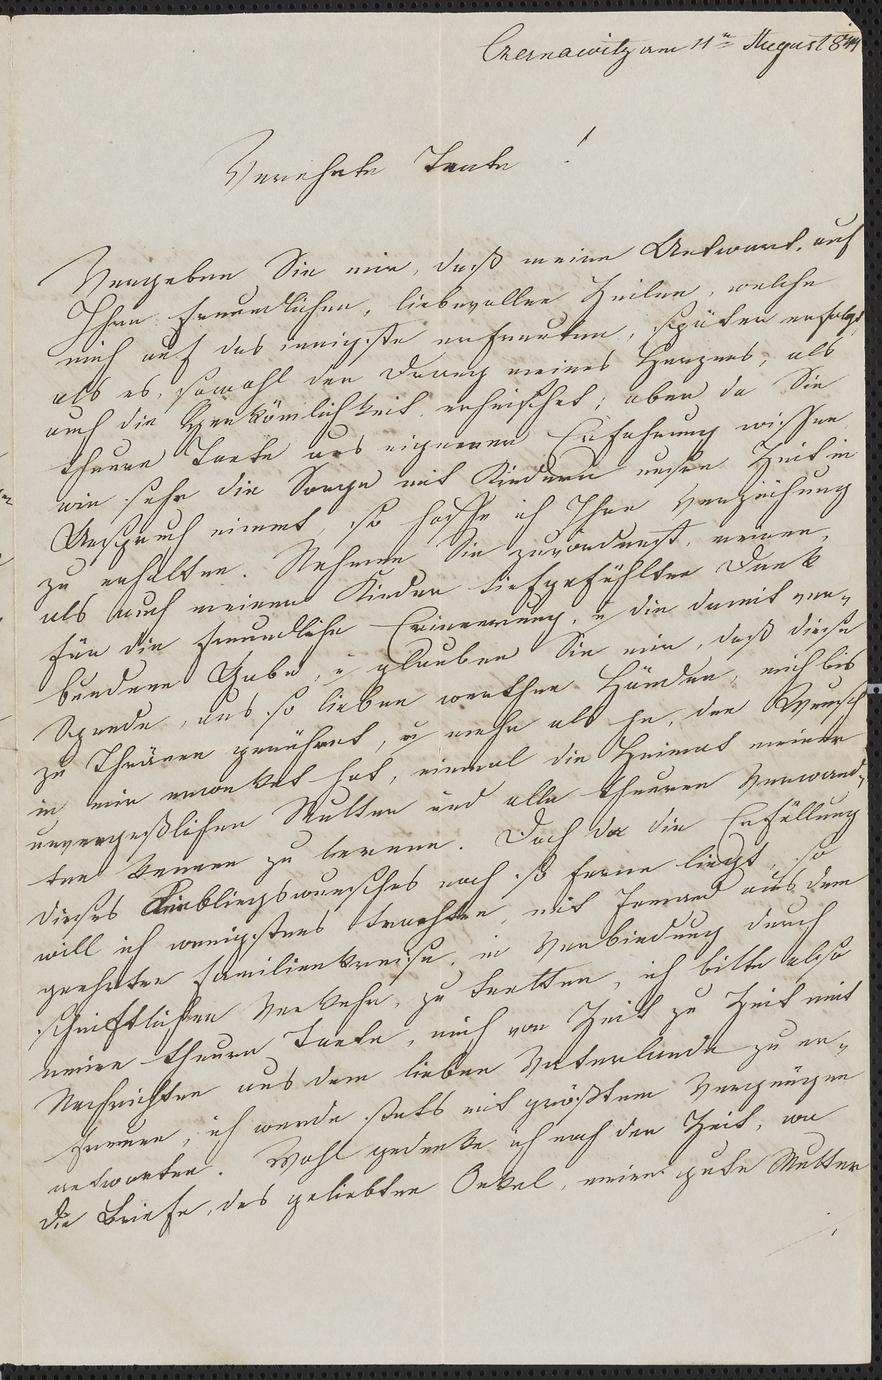 Czernawitz am 11ten August 844
Verehrte Tante !
Vergeben Sie mir, daß meine Antwort, auf
Ihre freundlichen, liebevollen Zeilen, welche
mich auf das innigste erfreuten, später erfolgt,
als es, sowohl der Drang meines Herzens, als
auch die Herkömlichkeit erheischet; aber da Sie
theure Tante aus eigener Erfahrung wissen
wie sehr die Sorge mit Kindern unsre Zeit in
Anspruch nimmt, so hoffe ich Ihre Verzeihung
zu erhalten. Nehmen Sie zuvörderst, meinen,
als auch meiner Kinder tiefgefühlten Dank
für die freundliche Erinnerung, u die damit ver-
bundene Gabe, u glauben Sie mir, daß diese
Spende, aus so lieben werthen Händen, mich bis
zu Thränen gerührt, u mehr als je, den Wunsch
in mir erwecket hat, einmal die Heimat meiner
unvergeßlichen Mutter und alle theuren Verwand-
ten kennen zu lernen. Doch da die Erfüllung
dieses Lieblingswunsches noch so ferne liegt, so
will ich wenigstens trachten, mit Jemand aus dem
geehrten Familienkreise, in Verbindung durch
schriftlichen Verkehr, zu tretten, ich bitte also
meine theure Tante, mich von Zeit zu Zeit mit
Nachrichten aus dem lieben Vaterlande zu er-
freuen, ich werde stets mit größtem Vergnügen
antworten. Wohl gedenke ich noch der Zeit, wo
die Briefe, des geliebten Onkel, meine gute Mutter